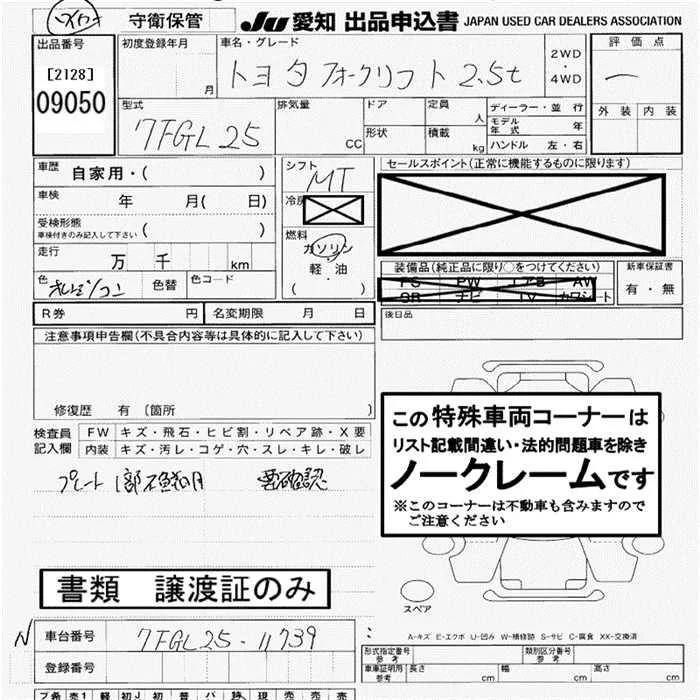 守衛保管 JU 愛知 出品申込書 JAPAN USED CAR DEALERS ASSOCIATION
出品番号 初度登録年月 車名・グレード 評価点
[2128] 月 トヨタ フォークリフト 2.5t 2WD・4WD 一
09050 型式 排気量 ドア 定員 ディーラー・並行 外装 内装
7FGL25 CC 人 モデル年式 年
形状 積載 kg ハンドル 左・右
車歴 自家用・( ) シフト MT セールスポイント(正常に機能するものに限ります)
車検 年 月( 日) 冷房
受検形態 ( ) 燃料
車検付きのみ記入して下さい ガソリン
走行 万 千 km 軽・油 装備品(純正品に限り○をつけてください) 新車保証書
色 オレンジ/コン 色替 色コード ( ) PS PW エアB AW 有・無
SR ナビ TV カワシート
R券 円 名変期限 月 日 後日品
注意事項申告欄(不具合内容等は具体的に記入して下さい)
修復歴 有 〔箇所 〕
検査員 FW キズ・飛石・ヒビ割・リペア跡・X要
記入欄 内装 キズ・汚レ・コゲ・穴・スレ・キレ・破レ
プレート 1部不鮮明 要確認
この特殊車両コーナーは
リスト記載間違い・法的問題車を除き
ノークレームです
※このコーナーは不動車も含みますので
ご注意ください
書類 譲渡証のみ
スペア
N 車台番号 7FGL25-11739
A-キズ E-エクボ U-凹み W-補修跡 S-サビ C-腐食 XX-交換済
登録番号 形式指定番号 参考 類別区分番号 参考
車車証明用 参考 長さ cm 幅 cm 高さ cm